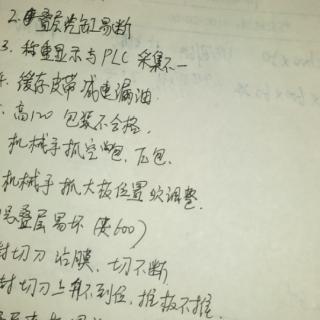 2.叠层气缸易断
3.称重显示与PLC采集不一
缓存皮带减速漏油.
高120包装不合格.
机械手抓空包、瓦包.
机械手抓大板位置须调整.
叠层易坏(宽600)
封切刀沾膜、切不断
封切刀上升不到位,推板不推.